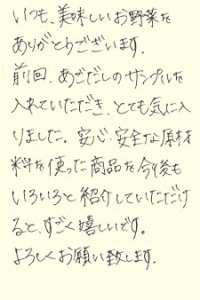 いつも、美味しいお野菜を
ありがとうございます。
前回、あごだしのサンプルを
入れていただき、とても気に入
りました。安心・安全な原材
料を使った商品を今後も
いろいろと紹介していただけ
ると、すごく嬉しいです。
よろしくお願い致します。